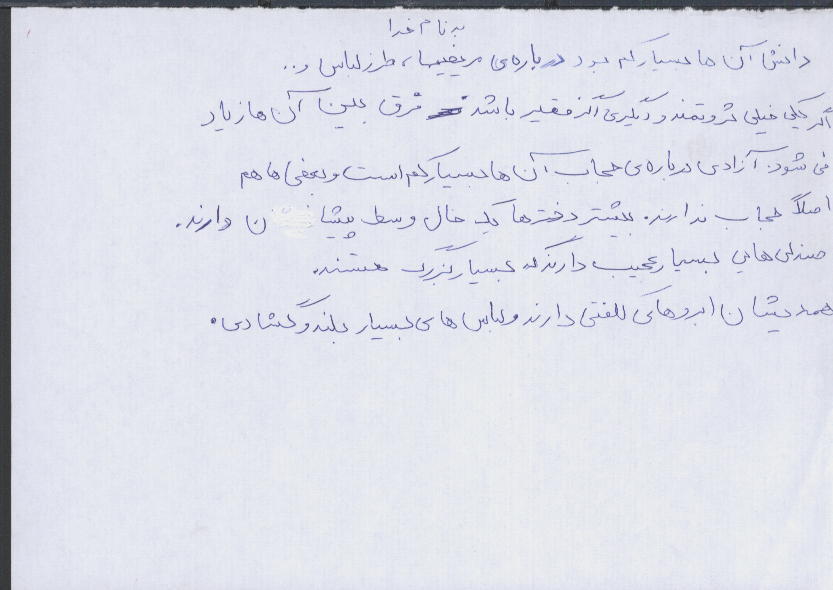 به نام خدا
دانش آن ها بسیار کم بود درباره‌ی مریضیها، طرز لباس و..
اگر یکی خیلی ثروتمند و دیگری اگز فقیر باشد فرق بین آن ها زیاد
می شود. آزادی درباره‌ی حجاب آن ها بسیار کم است و بعضی ها هم
اصلاً حجاب ندارند. بیشتر دخترها یک خال وسط پیشا ن دارند.
صندلی هایی بسیار عجیب دارند که بسیار بزرگ هستند.
همه یشان ابروهای کلفتی دارند و لباس های بسیار بلند و گشادی.